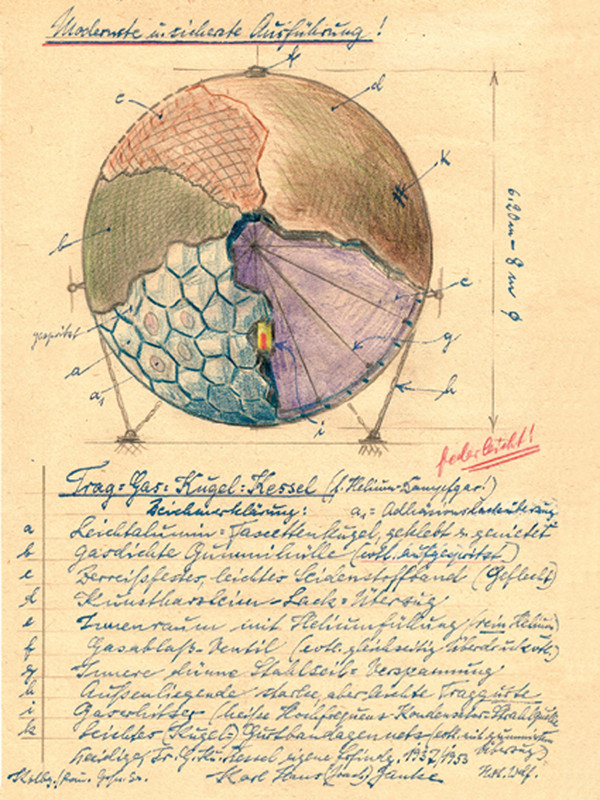 Modernste u. sicherste Ausführung!
f
c
d
K
b
e
6,20 m – 8 m ϕ
gespritzt
g
a
h
a,
i
federleicht!
Trag=Gas=Kugel=Kessel (f. Helium-Dampfgas!)
Zeichenerklärung: a,=
a Leichtalumin=Facettenkugel, geklebt & genietet
b Gasdichte Gummihülle (evtl. aufgespritzt)
c Zerreißfestes, leichtes Seidenstoffband (Geflecht)
d Kunstharzleim-Lack=Überzug
e Innenraum mit Heliumfüllung (rein Helium)
f Gasablaß-Ventil (evtl. gleichzeitig Überdruckvtl.)
g Innere dünne Stahlseil=Verspannung
h Außenliegende starke, aber leichte Traggurte
i Gaserhitzer (heiße Hochfrequenz-Kondensator-Strahl
k Leichtes (Kugel=) Gurtbandagennetz (evtl. mit
Überzug)
Tr. G. Ku. Kessel eigene Erfindg. 1937/1953
Karl Hans Janke